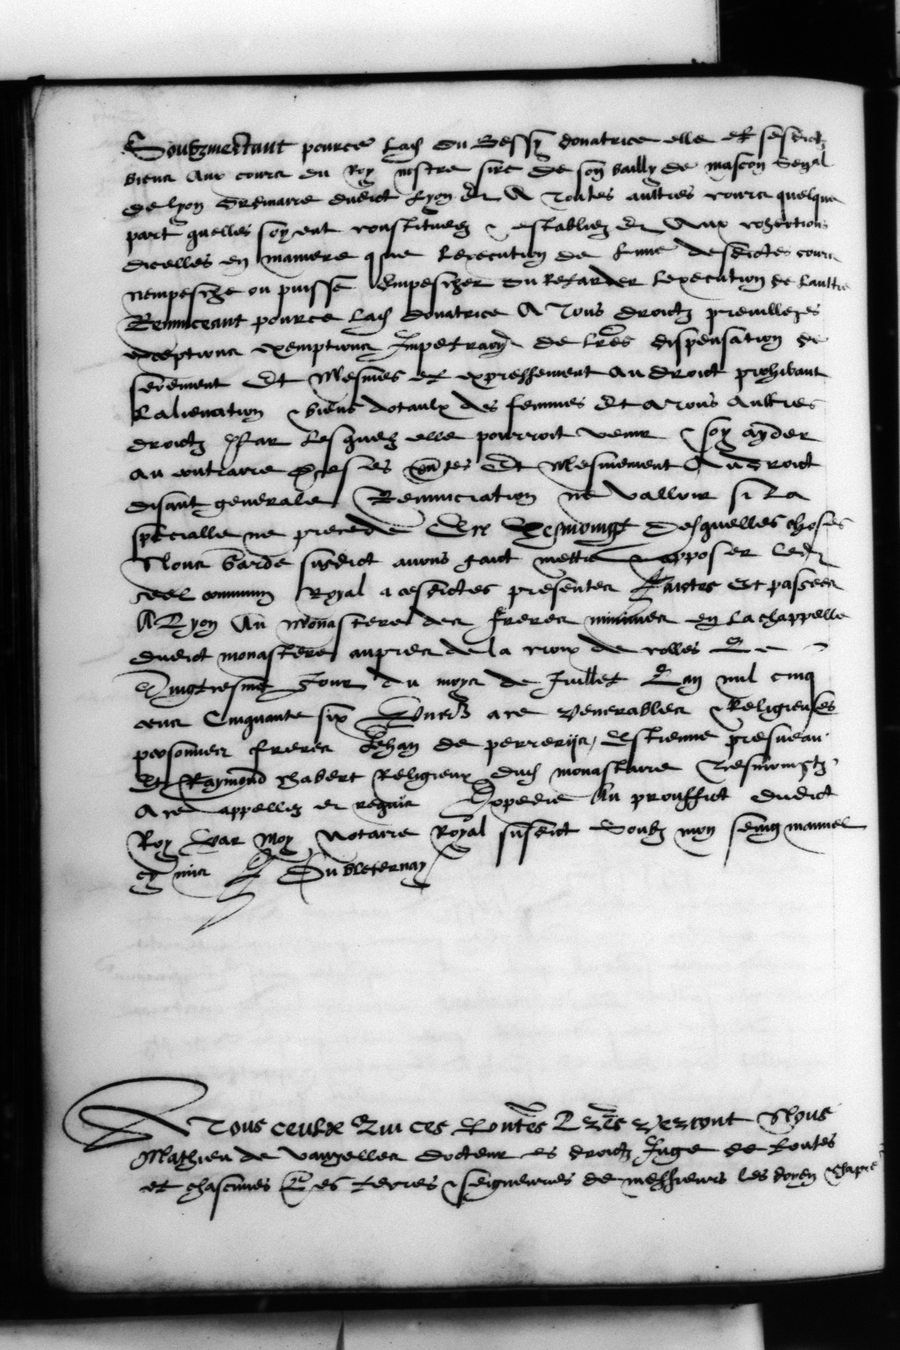 Soubzmectant pource lad du Bessy donatrice elle et sesdictz
biens aux cours du Roy nostre sire de son bailly de mascon senal
de lyon ordinaire dudict lyon et A toutes aultres cours quelque
part quelles soyent constituez & establiez et Aux cohertions
dicelles en maniere que lexecution de lune desdictes cours
nempesche ou puisse empescher ou retarder lexecution de laultre
Renunceant pource lad donatrice A tous droictz previlleges
exceptions exemptions Impetracon de lres dispensation de
serement Et Mesmes et expressement au droict prohibant
Lalienation & biens dotaulx des femmes Et a tous Aultres
droictz Par lesquelz elle pourroit venir & soy ayder
au contraire Et Mesmement Au droict
disant generale Renunciation ne valloir si La
specialle ne precede En Tesmoing Desquelles choses
Nous Garde susdict avons faict mettre & apposer ledt
seel commun Royal a cesdictes presentes Faictes Et passees
A Lyon Au Monastere des freres minimes en La chappelle
dudict monastere aupres de la croix de colles Le
Vingtiesme Jour du moys de Juillet Lan mil cinq
cens Cinquante six Presens a ce venerables & Religieuses
personnes freres Jehan de perrerija, Estienne presveau
Et Raymond chabert Religieux dud monastaire Tesmoingtz
A ce appellez et requis Expedie Au prouffict dudict
Roy Par Moy Notaire Royal susdict Soubz mon seing manuel
cy mis Dubleternay
A Tous ceulx Qui ces Pontes Lres verront Nous
Mathieu de Vauzelles docteur es droictz Juge de toutes
et chascunes Les terres & seigneuries de messieurs les doyen chapre